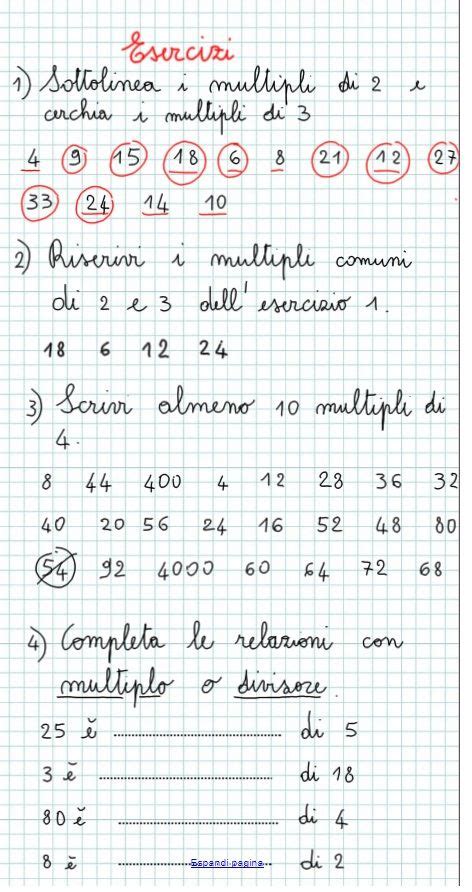 Esercizi
1) Sottolinea i multipli di 2 e
cerchia i multipli di 3
4 9 15 18 6 8 21 12 27
33 24 14 10
2) Riscrivi i multipli comuni
di 2 e 3 dell'esercizio 1.
18 6 12 24
3) Scrivi almeno 10 multipli di
4.
8 44 400 4 12 28 36 32
40 20 56 24 16 52 48 80
54 92 4000 60 64 72 68
4) Completa le relazioni con
multiplo o divisore.
25 è ........................ di 5
3 è ........................ di 18
80 è ........................ di 4
8 è ............ Espandi pagina di 2